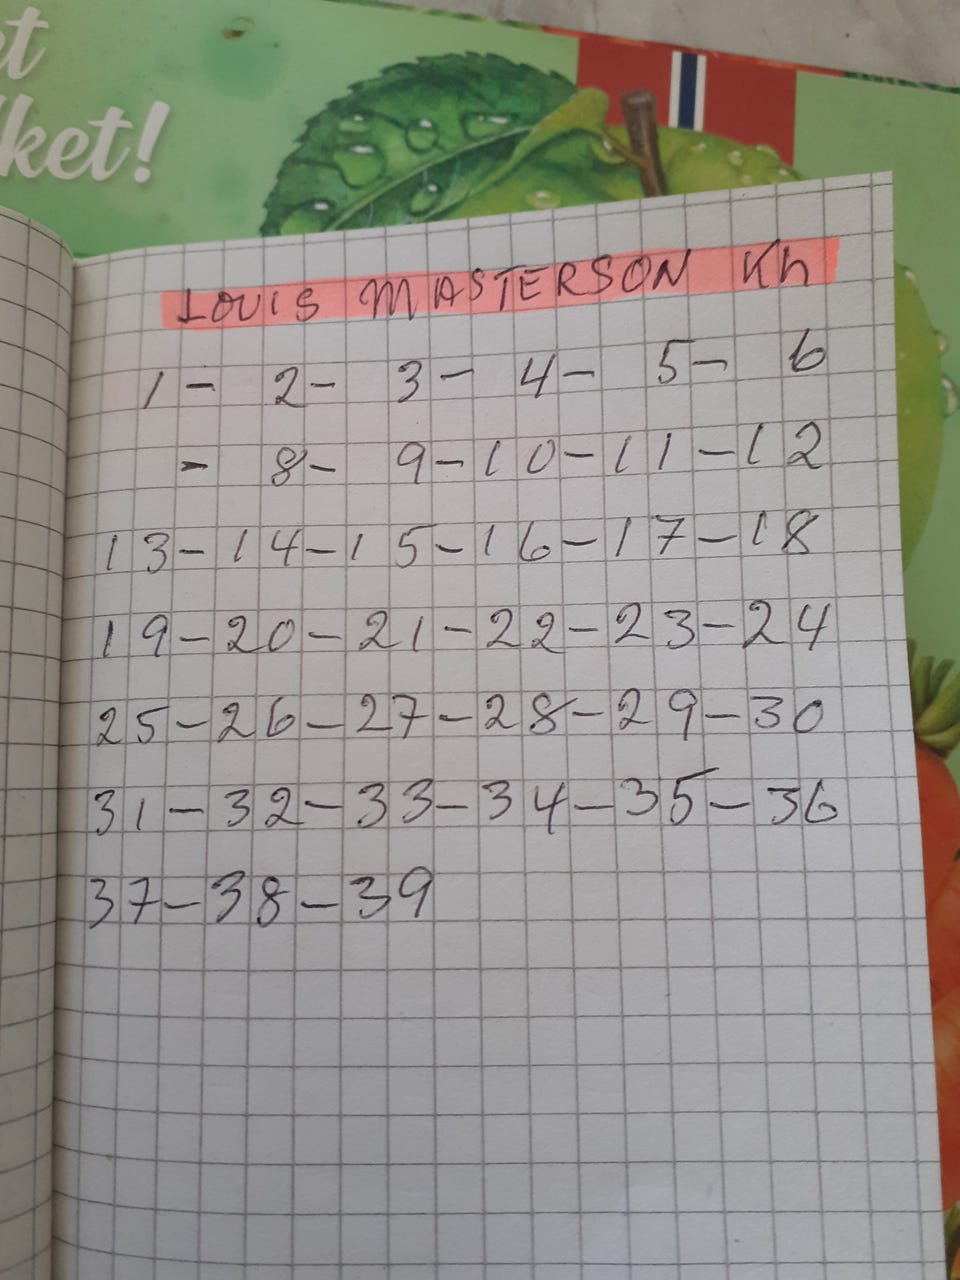 et
ket!
LOUIS MASTERSON Kh
1 - 2 - 3 - 4 - 5 - 6
- 8 - 9 - 10 - 11 - 12
13 - 14 - 15 - 16 - 17 - 18
19 - 20 - 21 - 22 - 23 - 24
25 - 26 - 27 - 28 - 29 - 30
31 - 32 - 33 - 34 - 35 - 36
37 - 38 - 39